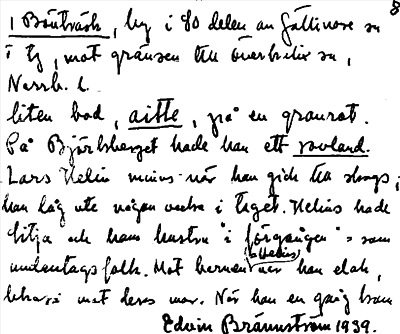 8
i Bönträsk, by i SO delen av Gällivare sn
i Lj, mot gränsen till Överkalix sn,
Norrb. l.
liten bod, aitte, på en granrot.
På Björkberget hade han ett rovland.
Lars Helin minns när han gick till skogs;
han låg ute någon vecka i taget. Helins hade
Litja och hans hustru "i förgången" som
undantagsfolk. Mot hennes var han elak,
mot deras mor. När han en gång kom
Edvin Brännström 1939.